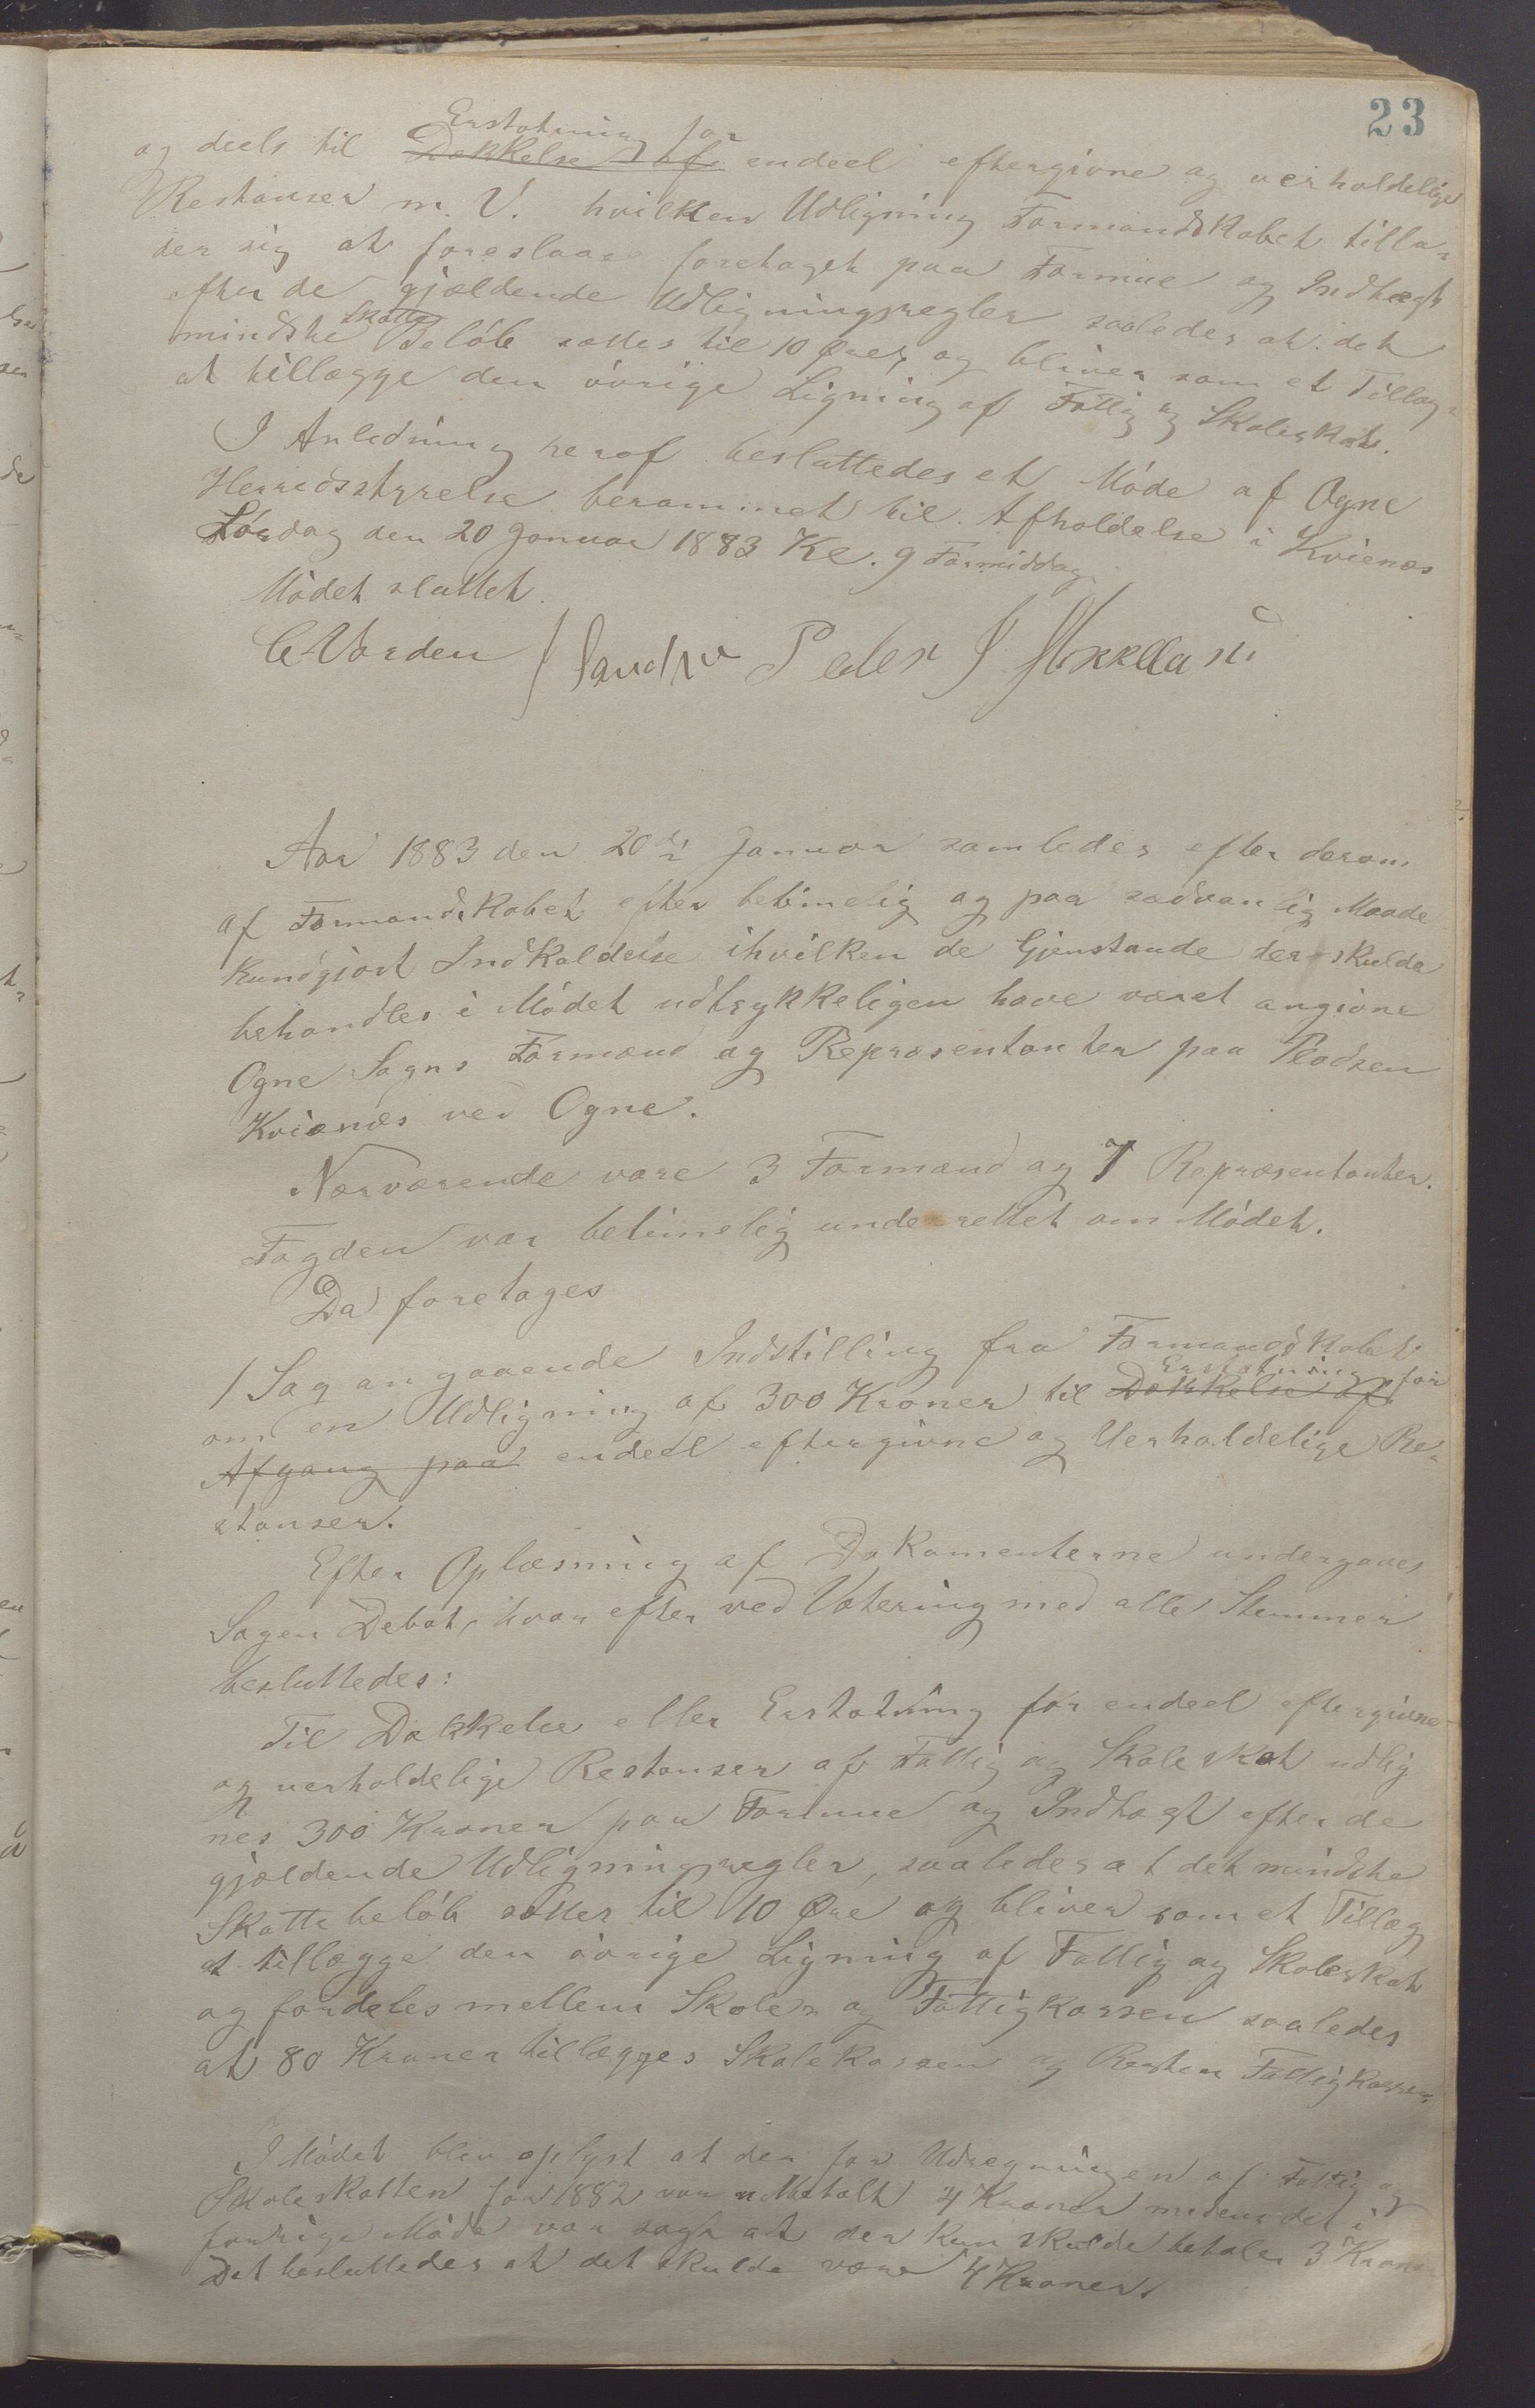 23
Erstatning for
og deels til Dækkelse af endeel eftergivne og uerholdelige
Restanser m. V. hvilken Udligning Formandskabet tilla-
der sig at foreslaae foretaget paa Formue og Indtægt
efter de gjældende Udligningsregler saaledes at det
mindste Skatte Beløb sættes til 10 Øre, og bliver som et Tillæg
at tillægge den øvrige Ligning af Fattig og Skoleskat.
I Anledning heraf besluttedes et Møde af Ogne
Herredsstyrelse berammet til Afholdelse i Kvienæs
Lørdag den 20 Januar 1883 Kl. 9 Formiddag
Mødet sluttet.
C Varden Peder J
Aar 1883 den 20de Januar samledes efter derom
af Formandskabet efter betimelig og paa sædvanlig Maade
kundgjort Indkaldelse ihvilken de Gjenstande der skulde
behandles i Mødet udtrykkeligen have været angivne
Ogne Sogns Formænd og Repræsentanter paa Pladsen
Kvienæs ved Ogne.
Nærværende vare 3 Formænd og 7 Repræsentanter.
Fogden var betimelig underrettet om Mødet.
Da foretages
1 Sag angaaende Indstilling fra Formandskabet
om en Udligning af 300 Kroner til Dækkelse af Erstatning for
Afgang paa endeel eftergivne og Uerholdelige Re-
stanser.
Efter Oplæsning af Dokumenterne undergaves
Sagen Debat, hvor efter ved Votering med alle Stemmer
besluttedes:
Til Dækkelse eller Erstatning for endeel eftergivne
og uerholdelige Restanser af Fattig og Skoleskat udlig
nes 300 Kroner paa Formue og Indtægt efter de
gjældende Udligningsregler, saaledes at det mindste
Skattebeløb sættes til 10 Øre og bliver som et Tillæg
at tillægge den øvrige Ligning af Fattig og Skoleskat
og fordeles mellem Skole- og Fattigkassen saaledes
at 80 Kroner tillægges Skolekassen og Resten Fattigkassen.
I Mødet blev oplyst at der for Udregningen af Fattig og
Skoleskatten for 1882 var udbetalt 4 Kroner medens det i
forrige Møde var sagt at der kun skulde betales 3 Kroner
Det besluttedes at det skulde være 4 Kroner.